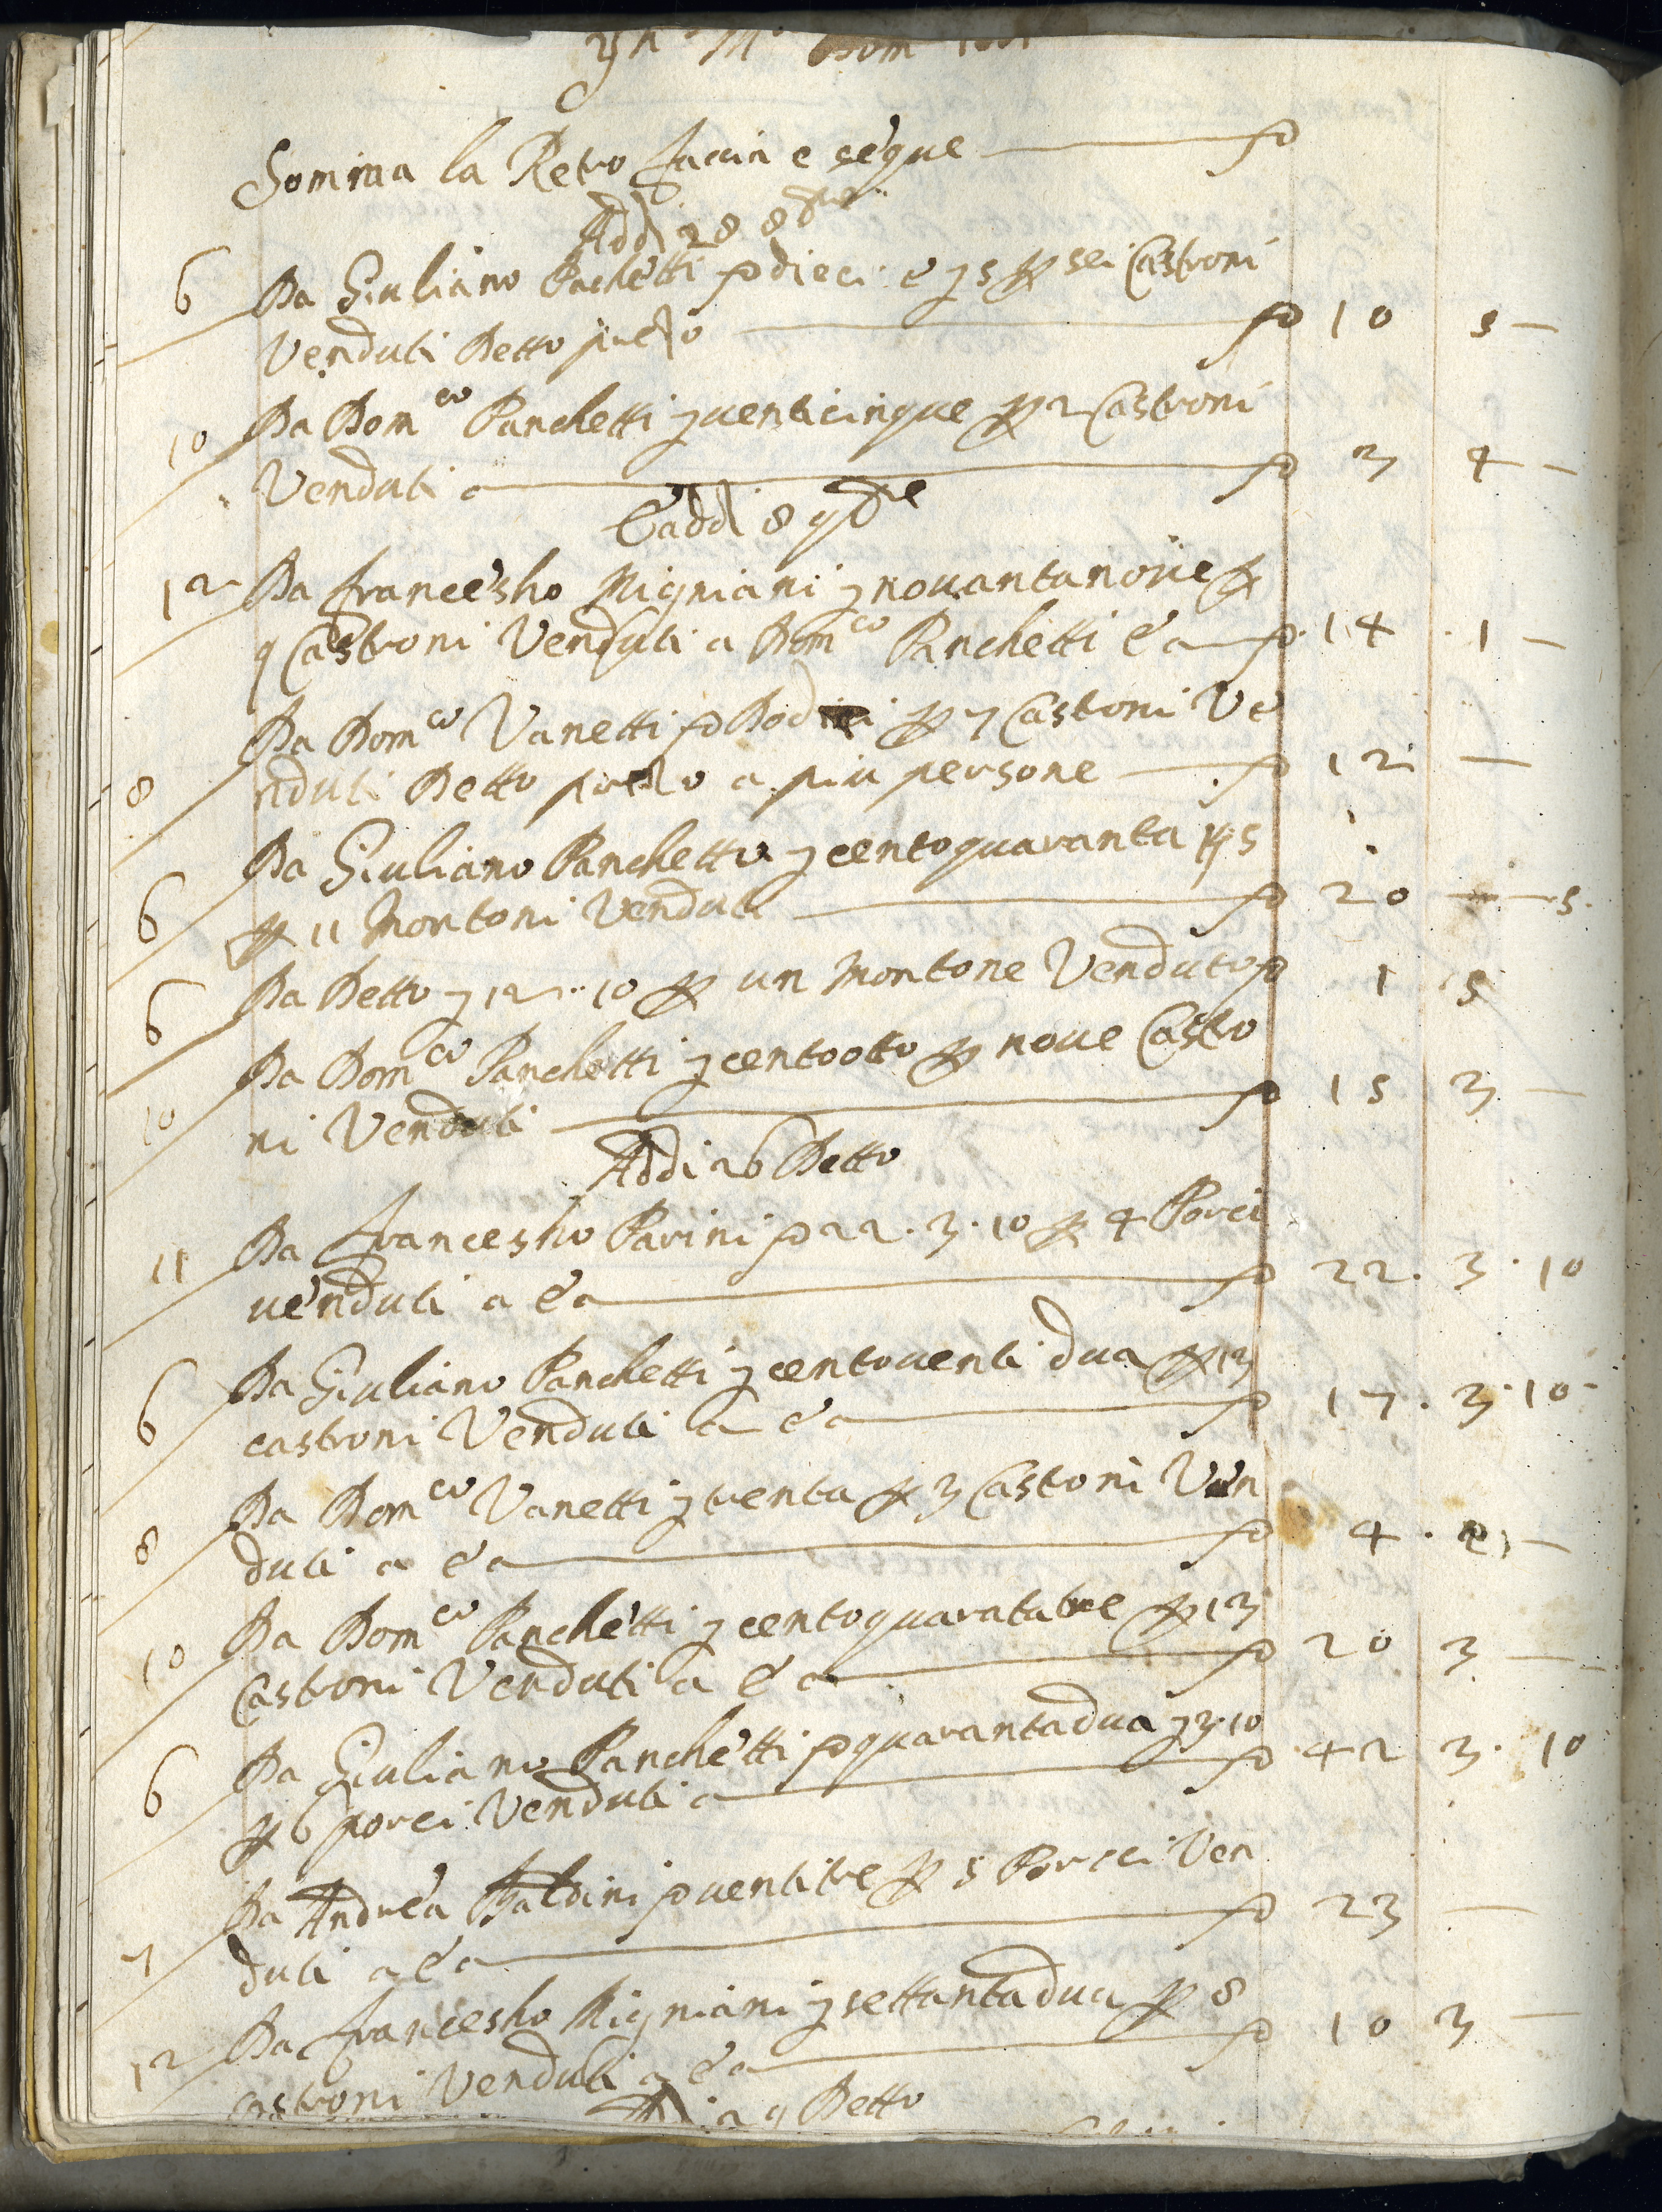 Somma la Retro faccia e segue
Addi 28 8bre
6 Da Giuliano Panchetti dieci e 5 sei Castroni
Venduti Detto 10 5 —
10 Da Domco Panchetti venticinque 2 Castroni
Venduti a 3 4 —
E addi 8 9bre
12 Da francesho Migniani novantanove
9 Castroni Venduti a Domco Panchetti e a 14 1 —
Da Domco Vanetti Dodici 7 Castoni Ve
8 nduti Detto prezo a piu persone 12 —
Da Giuliano Panchetti centoquaranta 5
6 11 Montoni Venduti 20 — 5
6 Da Detto 12.10 un Montone Venduto 1 5
Da Domco Panchetti centootto nove Castro
10 ni Venduti 15 3 —
Addi 26 Detto
11 Da francesho Parini 22.3.10 4 Porci
venduti a e a 22.3.10
Da Giuliano Panchetti centoventi dua 13
6 castroni Venduti a e a 17.3.10
Da Domco Vanetti trenta 3 Castoni Ven
8 duti a e a 4. 2 —
Da Domco Panchetti centoquaratatre 13
10 Castroni Venduti a e a 20 3 —
Da Giuliano Panchetti quarantadua 3 10
6 6 porci Venduti a 42 3. 10
Da Andrea Baldini ventitre 5 Porcci Ven
7 duti a e a 23 —
Da francesho Migniani settantadua 8
12 castroni Venduti a e a 10 3 —
Addi 29 Detto